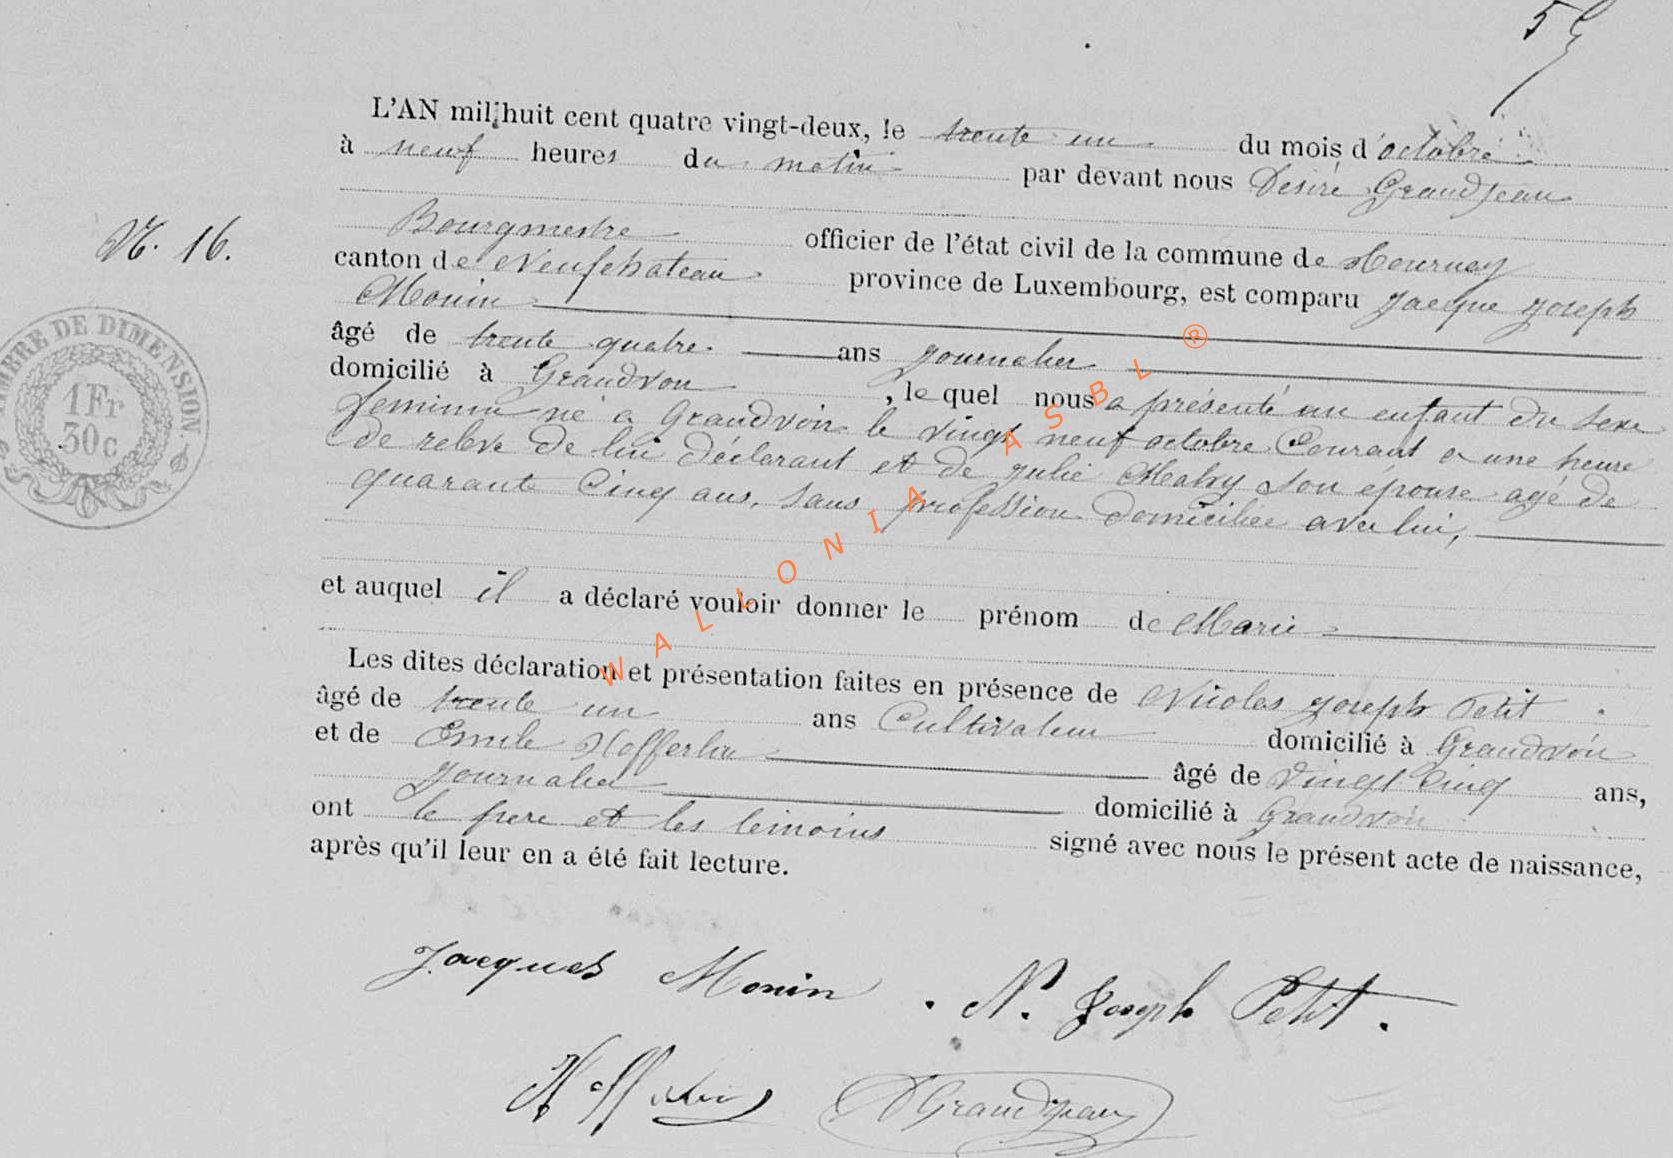 57
L'AN mil huit cent quatre vingt-deux, le trente un du mois d'octobre
à neuf heures du matin par devant nous Désiré Grandjean
Bourgmestre officier de l'état civil de la commune de Tournay
N. 16.
canton de Neufchateau province de Luxembourg, est comparu Jacque Joseph
Monin
âgé de trente quatre ans journalier
domicilié à Grandvoir, le quel nous a présenté un enfant du sexe
feminin né a Grandvoir le vingt neuf octobre Courant a une heure
de relevé de lui déclarant et de Julie Mahy son épouse agé de
quarante Cinq ans, sans profession domiciliée avec lui,
et auquel il a déclaré vouloir donner le prénom de Marie
Les dites déclaration et présentation faites en présence de Nicolas Joseph Petit
âgé de trente un ans Cultivateur domicilié à Grandvoir
et de Emile Hofferlin âgé de vingt cinq ans,
journalier domicilié à Grandvoir
ont le pere et les temoins signé avec nous le présent acte de naissance,
après qu'il leur en a été fait lecture.
Jacques Monin. N. Joseph Petit.
DGrandjean
TIMBRE DE DIMENSION.
1Fr
30c
WALLONIA ASBL ®